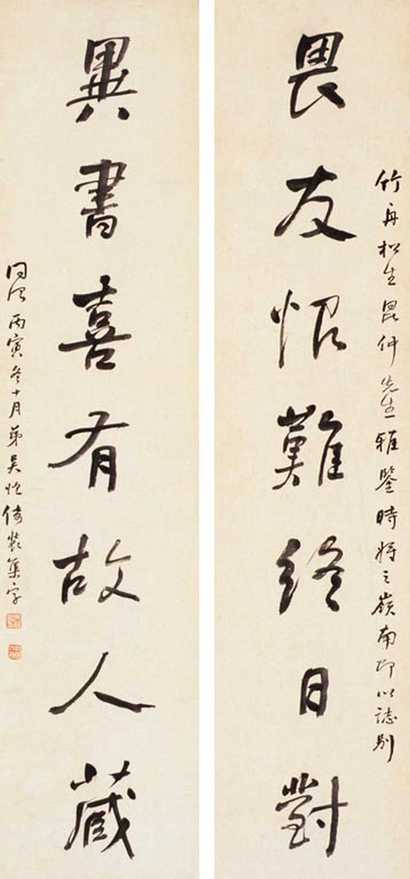 竹舟松生昆仲先生雅鑒時將之嶺南即以誌別
畏友恨難終日對
異書喜有故人藏
同治丙寅冬十月弟吴恒倚裝集字